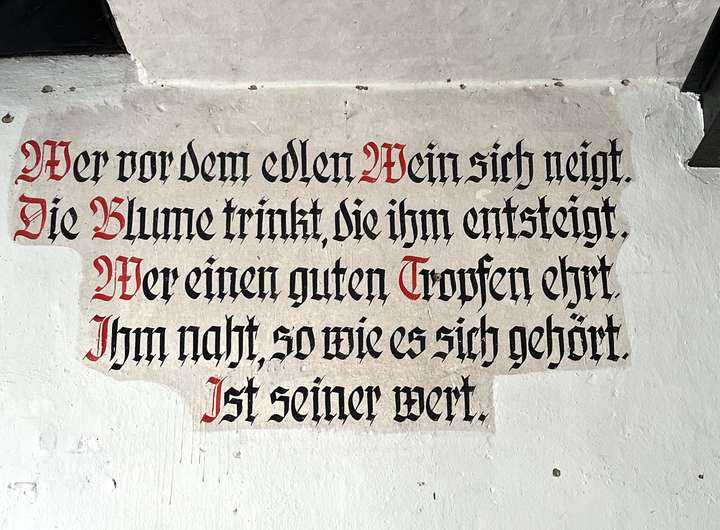 Wer vor dem edlen Wein sich neigt.
Die Blume trinkt, die ihm entsteigt.
Wer einen guten Tropfen ehrt.
Ihm naht, so wie es sich gehört.
Ist seiner wert.